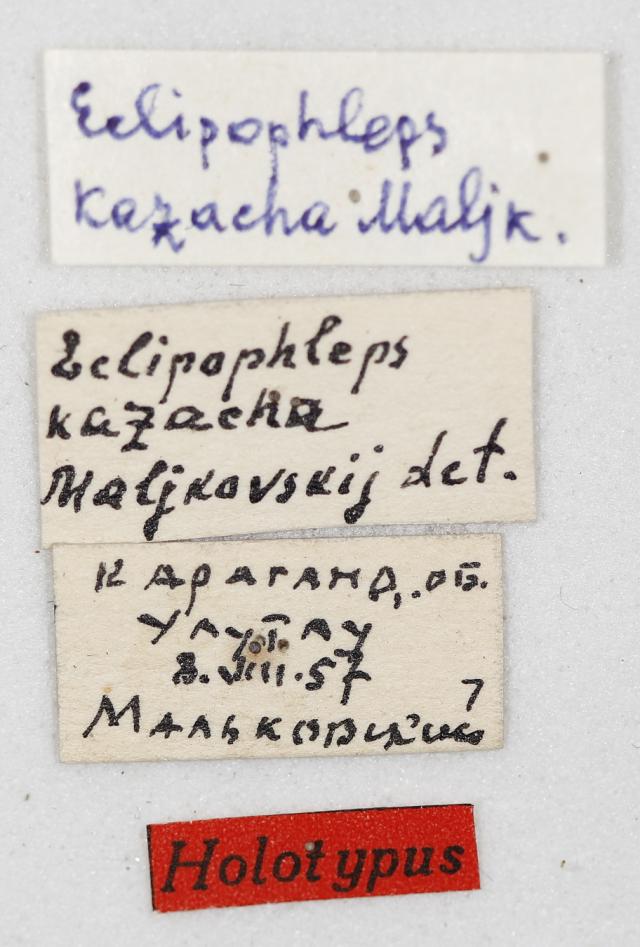 Eclipophleps
kazacha Maljk.
Eclipophleps
kazacha
Maljkovskij det.
Караганд. об.
Улутау
3.VIII.57
7
Мальковский
Holotypus